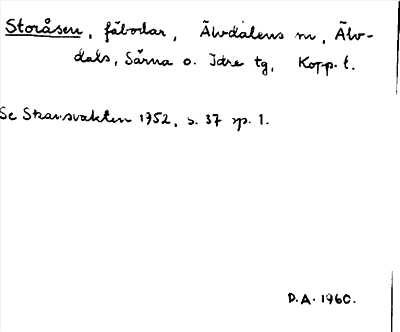 Storåsen, fäbodar, Älvdalens sn, Älv-
dals, Särna o. Idre tg, Kopp. l.
Se Skansvakten 1952, s. 37 sp. 1.
D.A. 1960.